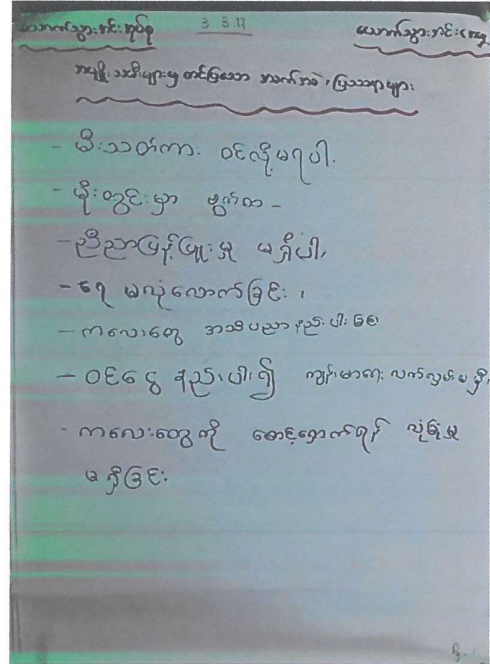 ယောက်သွားအင်းအုပ်စု 3.3.17 ယောက်သွားအင်းကျေး
အမျိုးသမီးများမှ တင်ပြသော အခက်အခဲ၊ ပြဿနာများ
- မီးသတ်ကား ဝင်လို့မရပါ.
- မိုးတွင်းမှာ ဗွက်ထ -
- ညီညာဖြန့်ဖြူးမှု မရှိပါ,
- ရေ မလုံလောက်ခြင်း ,
- ကလေးတွေ အသိပညာ နည်းပါးခြင်း
- ဝင်ငွေ နည်းပါး၍ ကျန်းမာရေး လက်လှမ်းမမှီ,
- ကလေးတွေကို စောင့်ရှောက်ရန် လုံခြုံမှု
မရှိခြင်း